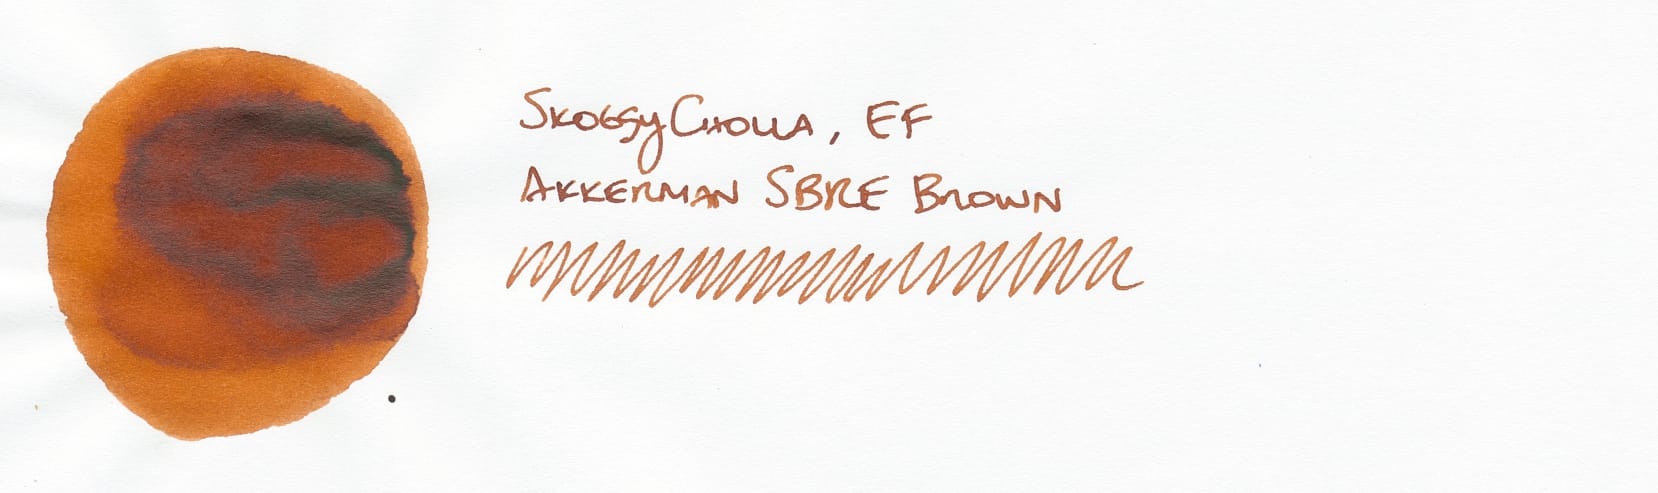 Skoggy Cholla, EF
Akkerman SBRE Brown